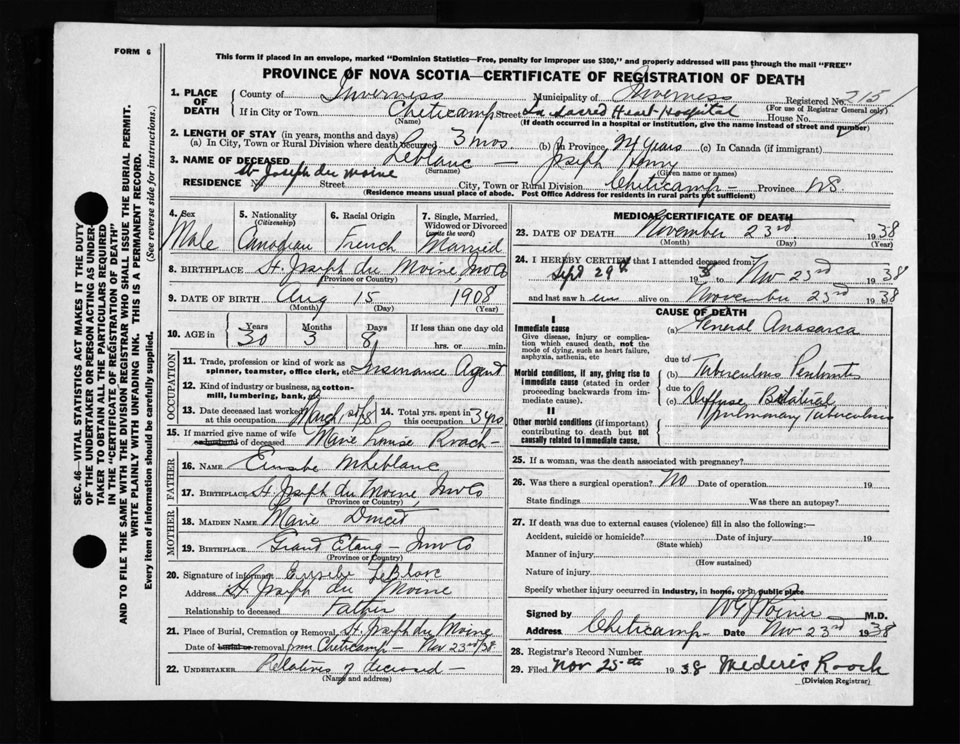 FORM 6
This form if placed in an envelope, marked "Dominion Statistics—Free, penalty for improper use $300," and properly addressed will pass through the mail "FREE"
PROVINCE OF NOVA SCOTIA—CERTIFICATE OF REGISTRATION OF DEATH
SEC. 46—VITAL STATISTICS ACT MAKES IT THE DUTY
OF THE UNDERTAKER OR PERSON ACTING AS UNDER-
TAKER TO OBTAIN ALL THE PARTICULARS REQUIRED
IN THE "CERTIFICATE OF REGISTRATION OF DEATH"
AND TO FILE THE SAME WITH THE DIVISION REGISTRAR WHO SHALL ISSUE THE BURIAL PERMIT.
WRITE PLAINLY WITH UNFADING INK. THIS IS A PERMANENT RECORD.
Every item of information should be carefully supplied. (See reverse side for instructions.)
1. PLACE OF DEATH
County of Inverness Municipality of Inverness Registered No. 215
(For use of Registrar General only)
If in City or Town Cheticamp Street Sacred Heart Hospital House No.
(Name) (If death occurred in a hospital or institution, give the name instead of street and number)
2. LENGTH OF STAY (in years, months and days)
(a) In City, Town or Rural Division where death occurred 3 mos (b) In Province 24 years (c) In Canada (if immigrant)
3. NAME OF DECEASED Leblanc — Joseph Henry
(Surname) (Given name or names)
RESIDENCE No. St Joseph du Moine Street City, Town or Rural Division Cheticamp — Province NS.
(Residence means usual place of abode. Post Office Address for residents in rural parts not sufficient)
4. Sex
Male
5. Nationality
(Citizenship)
Canadian
6. Racial Origin
French
7. Single, Married,
Widowed or Divorced
(write the word)
Married
8. BIRTHPLACE St. Joseph du Moine, Inv Co
(Province or County)
9. DATE OF BIRTH Aug 15 1908
(Month) (Day) (Year)
10. AGE in
Years Months Days If less than one day old
30 3 8 hrs. or min.
OCCUPATION
11. Trade, profession or kind of work as
spinner, teamster, office clerk, etc. Insurance Agent
12. Kind of industry or business, as cotton-
mill, lumbering, bank, etc.
13. Date deceased last worked
at this occupation March 1st/38
14. Total yrs. spent in
this occupation 3 yrs
15. If married give name of wife
or husband of deceased Marie Louise Roach
FATHER
16. NAME Eusebe Leblanc
17. BIRTHPLACE St. Joseph du Moine, Inv Co
(Province or County)
MOTHER
18. MAIDEN NAME Marie Doucet
19. BIRTHPLACE Grand Etang — Inv Co
(Province or Country)
20. Signature of informant Eusebe LeBlanc
Address St Joseph du Moine
Relationship to deceased Father
21. Place of Burial, Cremation or Removal St Joseph du Moine
Date of burial or removal from Cheticamp — Nov 23rd/38
22. UNDERTAKER Relatives of deceased —
(Name and address)
MEDICAL CERTIFICATE OF DEATH
23. DATE OF DEATH November 23rd 1938
(Month) (Day) (Year)
24. I HEREBY CERTIFY that I attended deceased from
Sept 29th 1938 to Nov 23rd 1938
and last saw him alive on November 23rd 1938
CAUSE OF DEATH
I
Immediate cause
Give disease, injury or complica-
tion which caused death, not the
mode of dying, such as heart failure,
asphyxia, asthenia, etc
(a) General Anasarca
due to
Morbid conditions, if any, giving rise to
immediate cause (stated in order
proceeding backwards from im-
mediate cause).
(b) Tuberculous Peritonitis
due to
(c) Diffuse Bilateral
Pulmonary Tuberculosis
II
Other morbid conditions (if important)
contributing to death but not
causally related to immediate cause.
25. If a woman, was the death associated with pregnancy?
26. Was there a surgical operation? No Date of operation 19
State findings Was there an autopsy?
27. If death was due to external causes (violence) fill in also the following:—
Accident, suicide or homicide? Date of injury 19
(State which)
Manner of injury
(How sustained)
Nature of injury
Specify whether injury occurred in industry, in home, or in public place
Signed by W G Poirier M.D.
Address Cheticamp Date Nov 23rd 1938
28. Registrar's Record Number
29. Filed Nov 25th 1938 Mederic Roach
(Division Registrar)